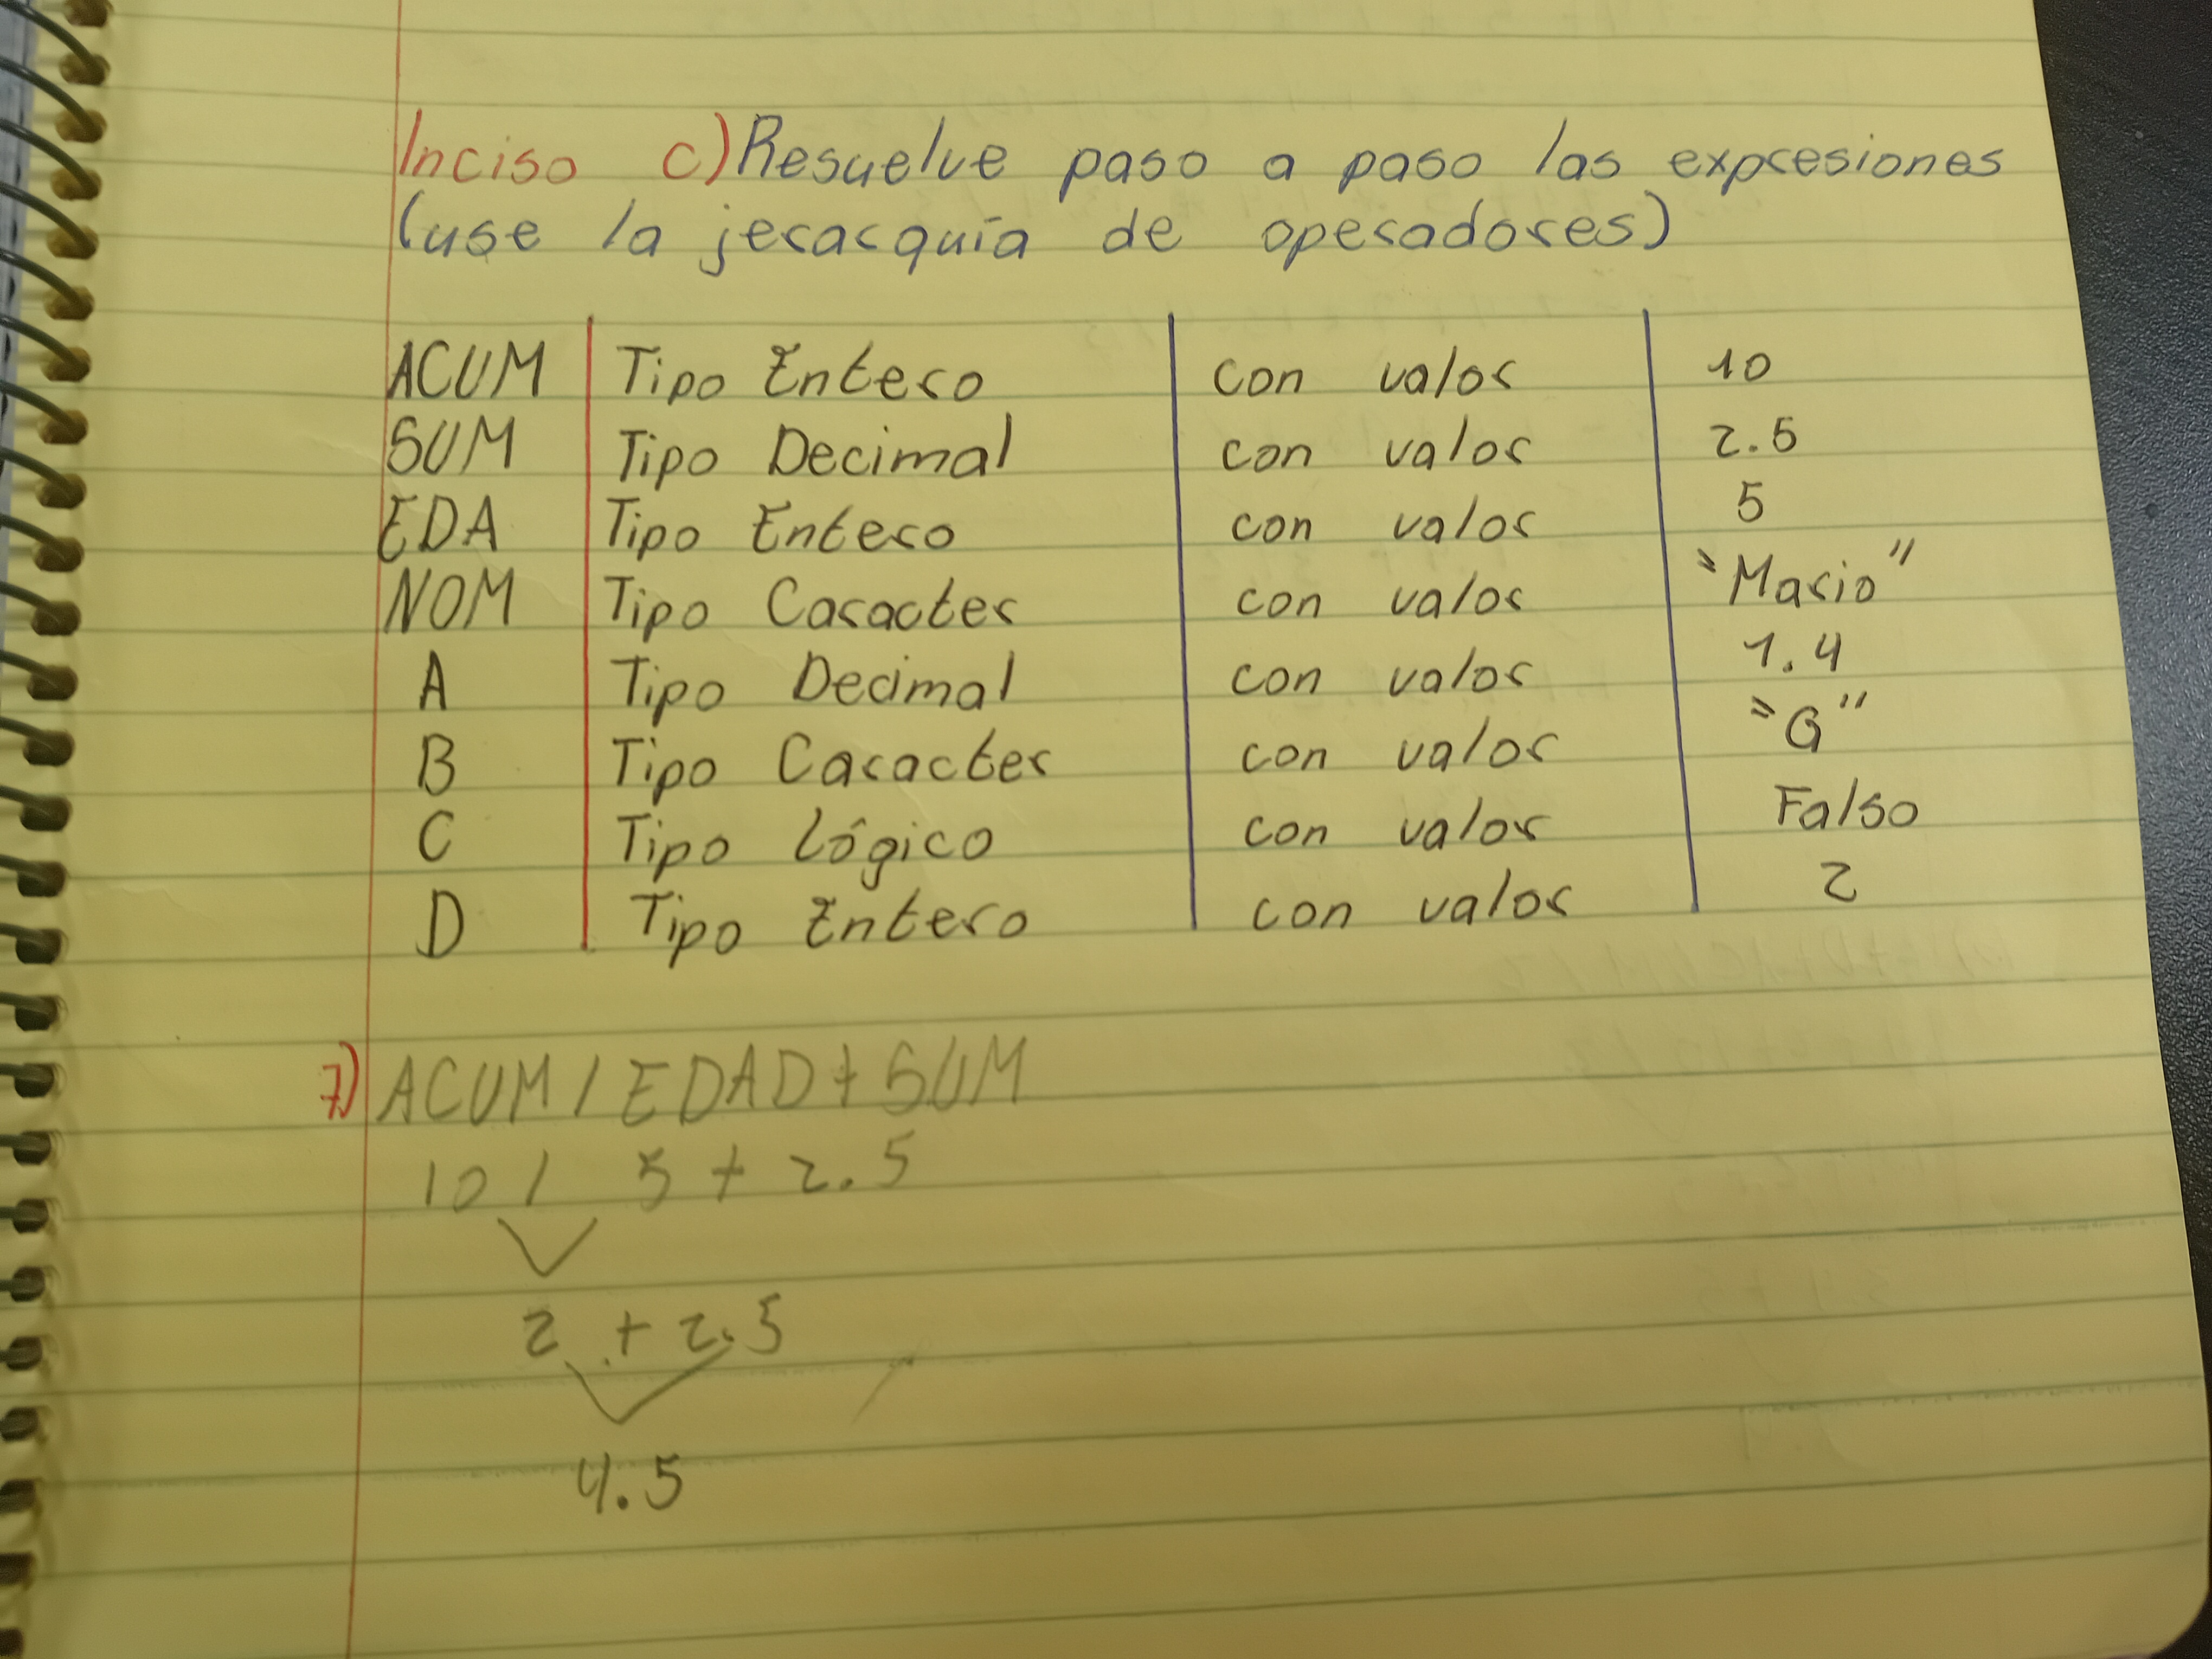 Inciso c) Resuelve paso a paso las expresiones
(use la jerarquía de operadores)
ACUM Tipo Entero con valor 10
SUM Tipo Decimal con valor 2.5
EDA Tipo Entero con valor 5
NOM Tipo Caracter con valor "Mario"
A Tipo Decimal con valor 1.4
B Tipo Caracter con valor "G"
C Tipo Lógico con valor Falso
D Tipo Entero con valor 2
7) ACUM / EDAD + SUM
10 / 5 + 2.5
2 + 2.5
4.5